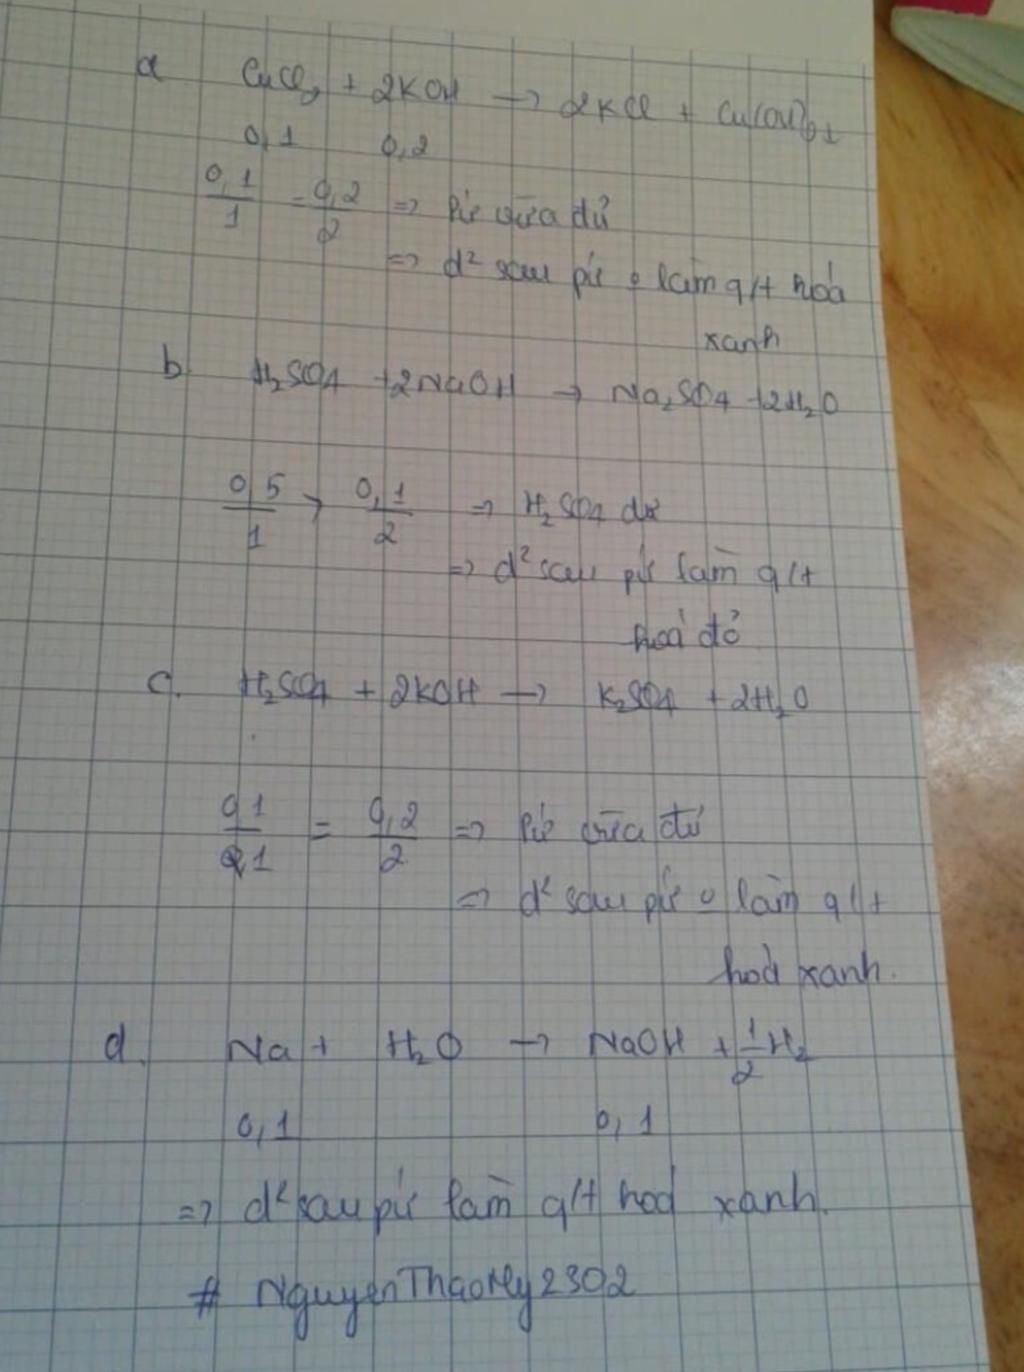 a CuCl2 + 2KOH → 2KCl + Cu(OH)2↓
0,1 0,2
0,1/1 = 0,2/2 => Pứ vừa đủ
=> d² sau pứ o làm q/t hoá
xanh
b H2SO4 + 2NaOH → Na2SO4 + 2H2O
0,5/1 > 0,1/2 => H2SO4 dư
=> d² sau pứ làm q/t
hoá đỏ
c. H2SO4 + 2KOH → K2SO4 + 2H2O
0,1/1 = 0,2/2 => Pứ vừa đủ
=> d² sau pứ o làm q/t
hoá xanh.
d. Na + H2O → NaOH + 1/2 H2
0,1 0,1
=> d² sau pứ làm q/t hoá xanh.
# NguyenThaoMy2302